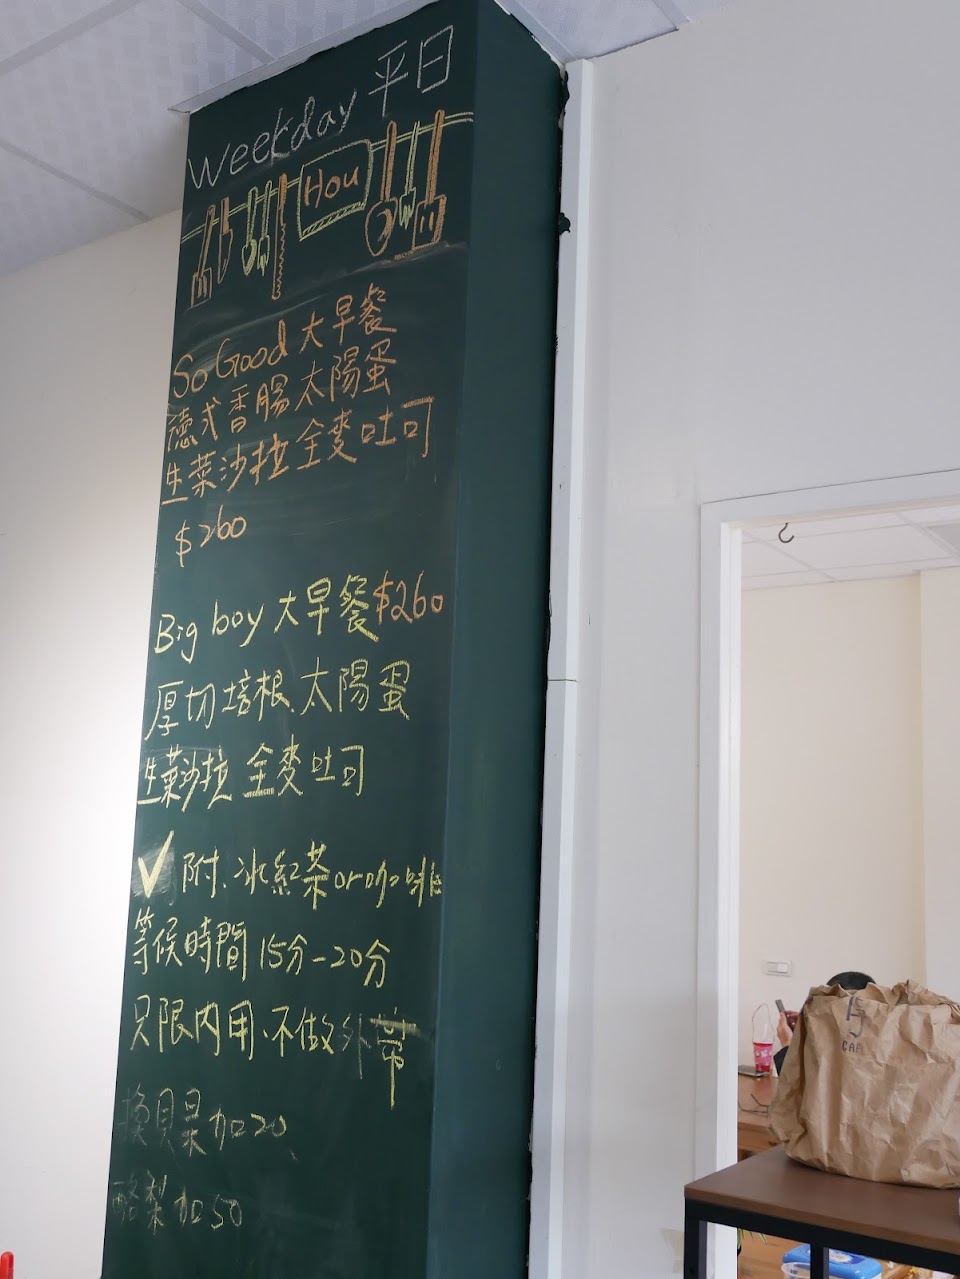 Weekday 平日
Hou
So Good 大早餐
德式香腸 太陽蛋
生菜沙拉 全麥吐司
$260
Big boy 大早餐 $260
厚切培根、太陽蛋
生菜沙拉 全麥吐司
✓ 附、冰紅茶or咖啡
等候時間 15分-20分
只限內用、不做外帶
換貝果加20
酪梨加50